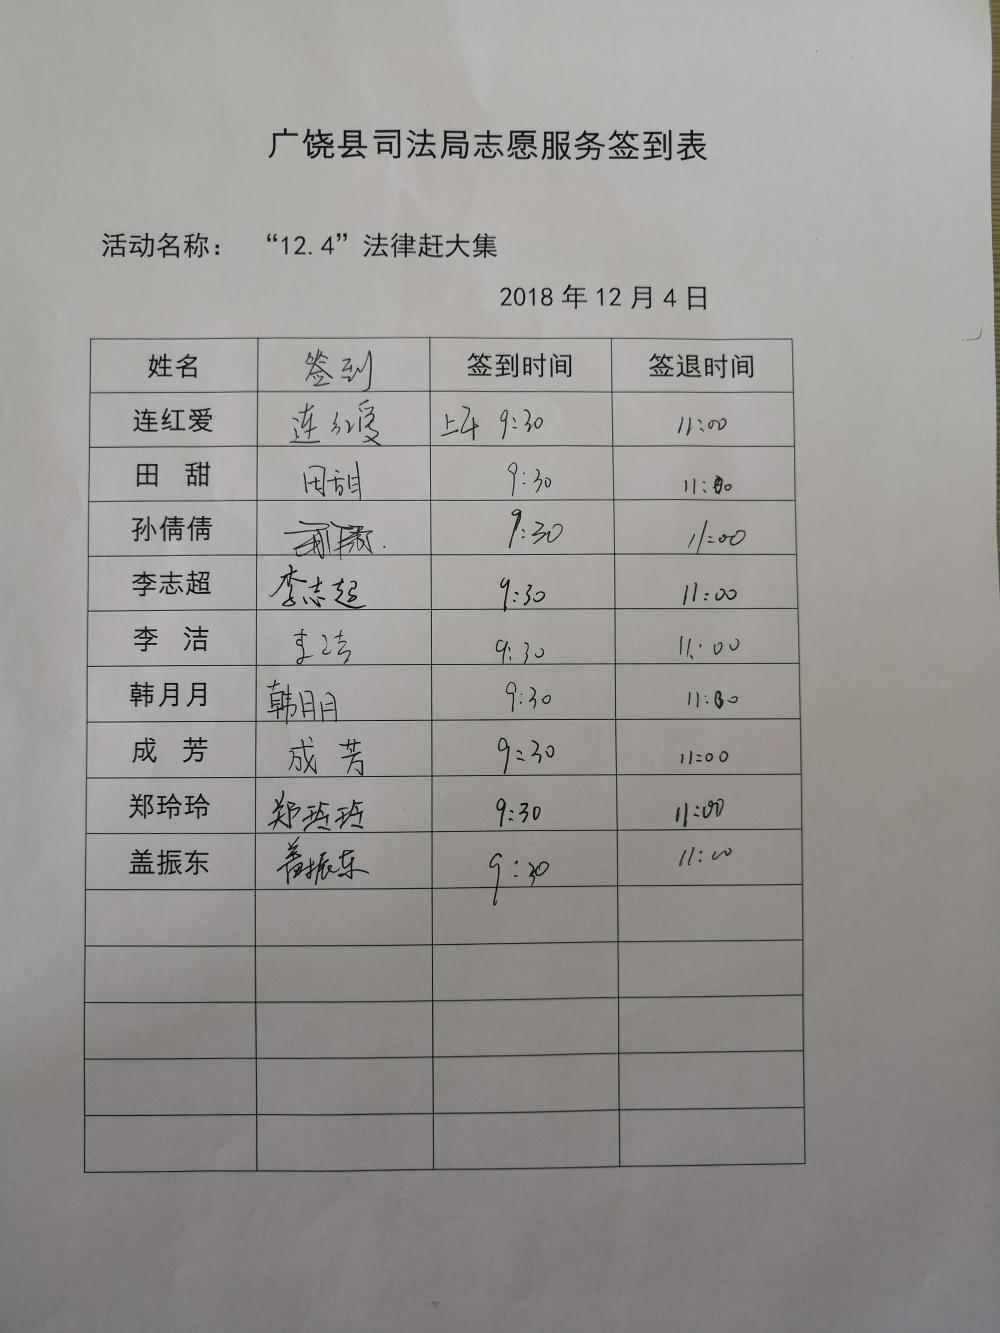 广饶县司法局志愿服务签到表
活动名称： “12.4”法律赶大集
2018年12月4日
姓名 签到 签到时间 签退时间
连红爱 连红爱 上午 9:30 11:00
田 甜 田甜 9:30 11:00
孙倩倩 9:30 11:00
李志超 李志超 9:30 11:00
李 洁 李洁 9:30 11:00
韩月月 韩月月 9:30 11:00
成 芳 成芳 9:30 11:00
郑玲玲 郑玲玲 9:30 11:00
盖振东 盖振东 9:30 11:00